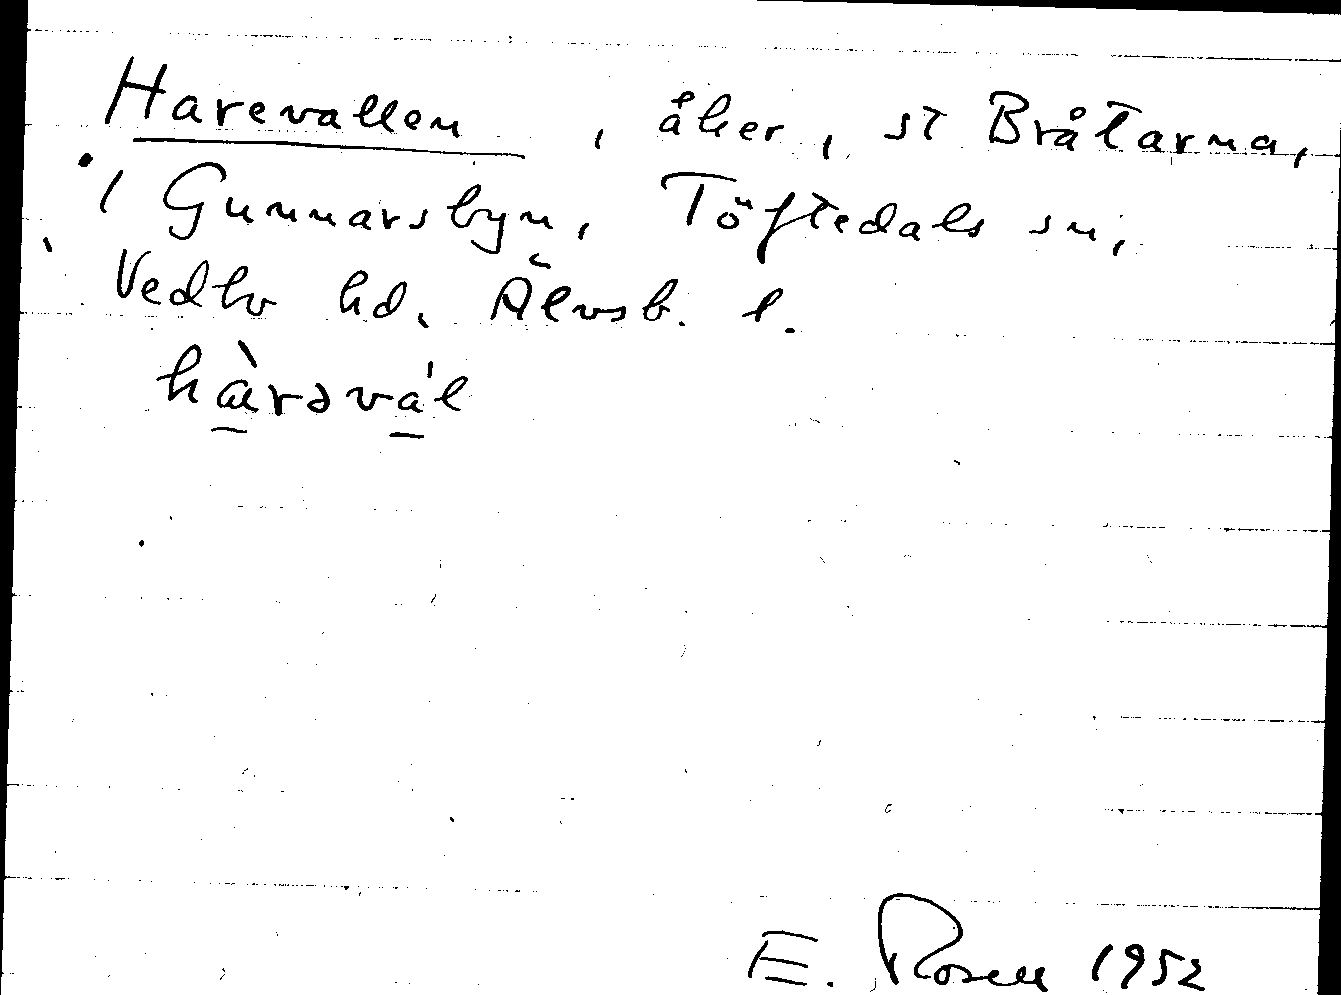 Harevallen, åker, st Bråtarna,
i Gunnarsbyn, Töftedals sn,
Vedbo hd. Älvsb. l.
hàrəvál
E. Rosell 1952